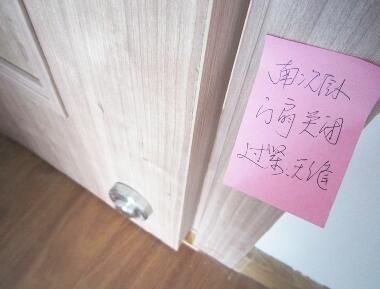 南次卧
门扇关闭
过紧、无缝